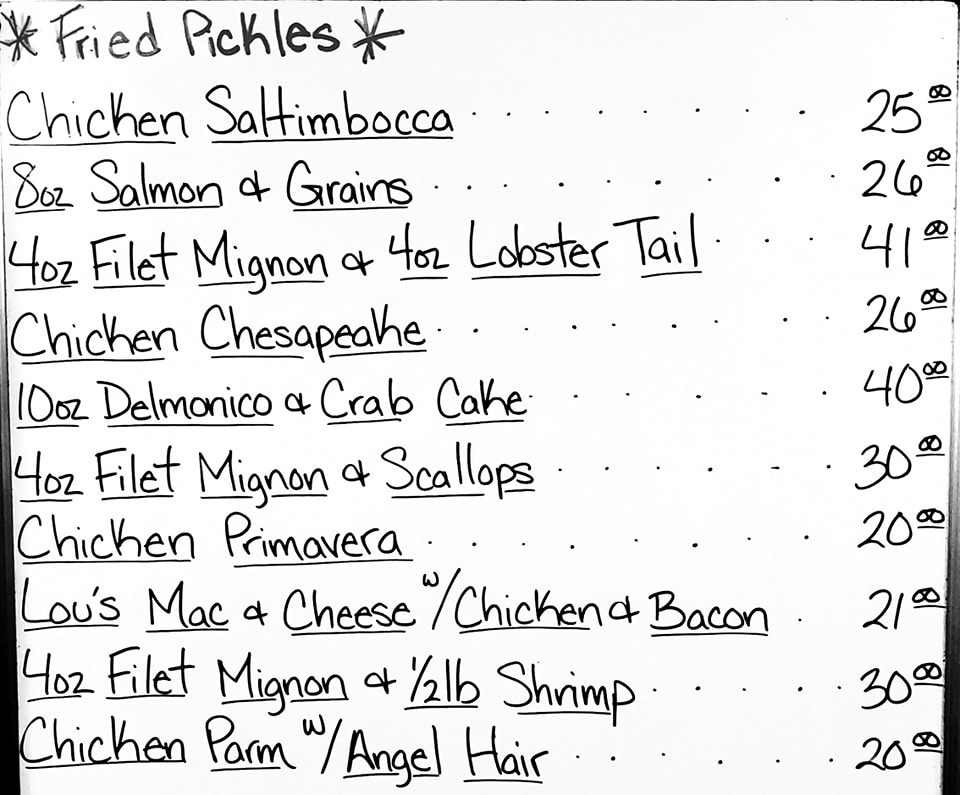 * Fried Pickles *
Chicken Saltimbocca . . . . . . . 25.00
8oz Salmon & Grains . . . . . . . . 26.00
4oz Filet Mignon & 4oz Lobster Tail . . . . 41.00
Chicken Chesapeake . . . . . . . . 26.00
10oz Delmonico & Crab Cake . . . . . . 40.00
4oz Filet Mignon & Scallops . . . . . . 30.00
Chicken Primavera . . . . . . . . 20.00
Lou's Mac & Cheese w/Chicken & Bacon . 21.00
4oz Filet Mignon & 1/2lb Shrimp . . . . . 30.00
Chicken Parm w/Angel Hair . . . . . . 20.00